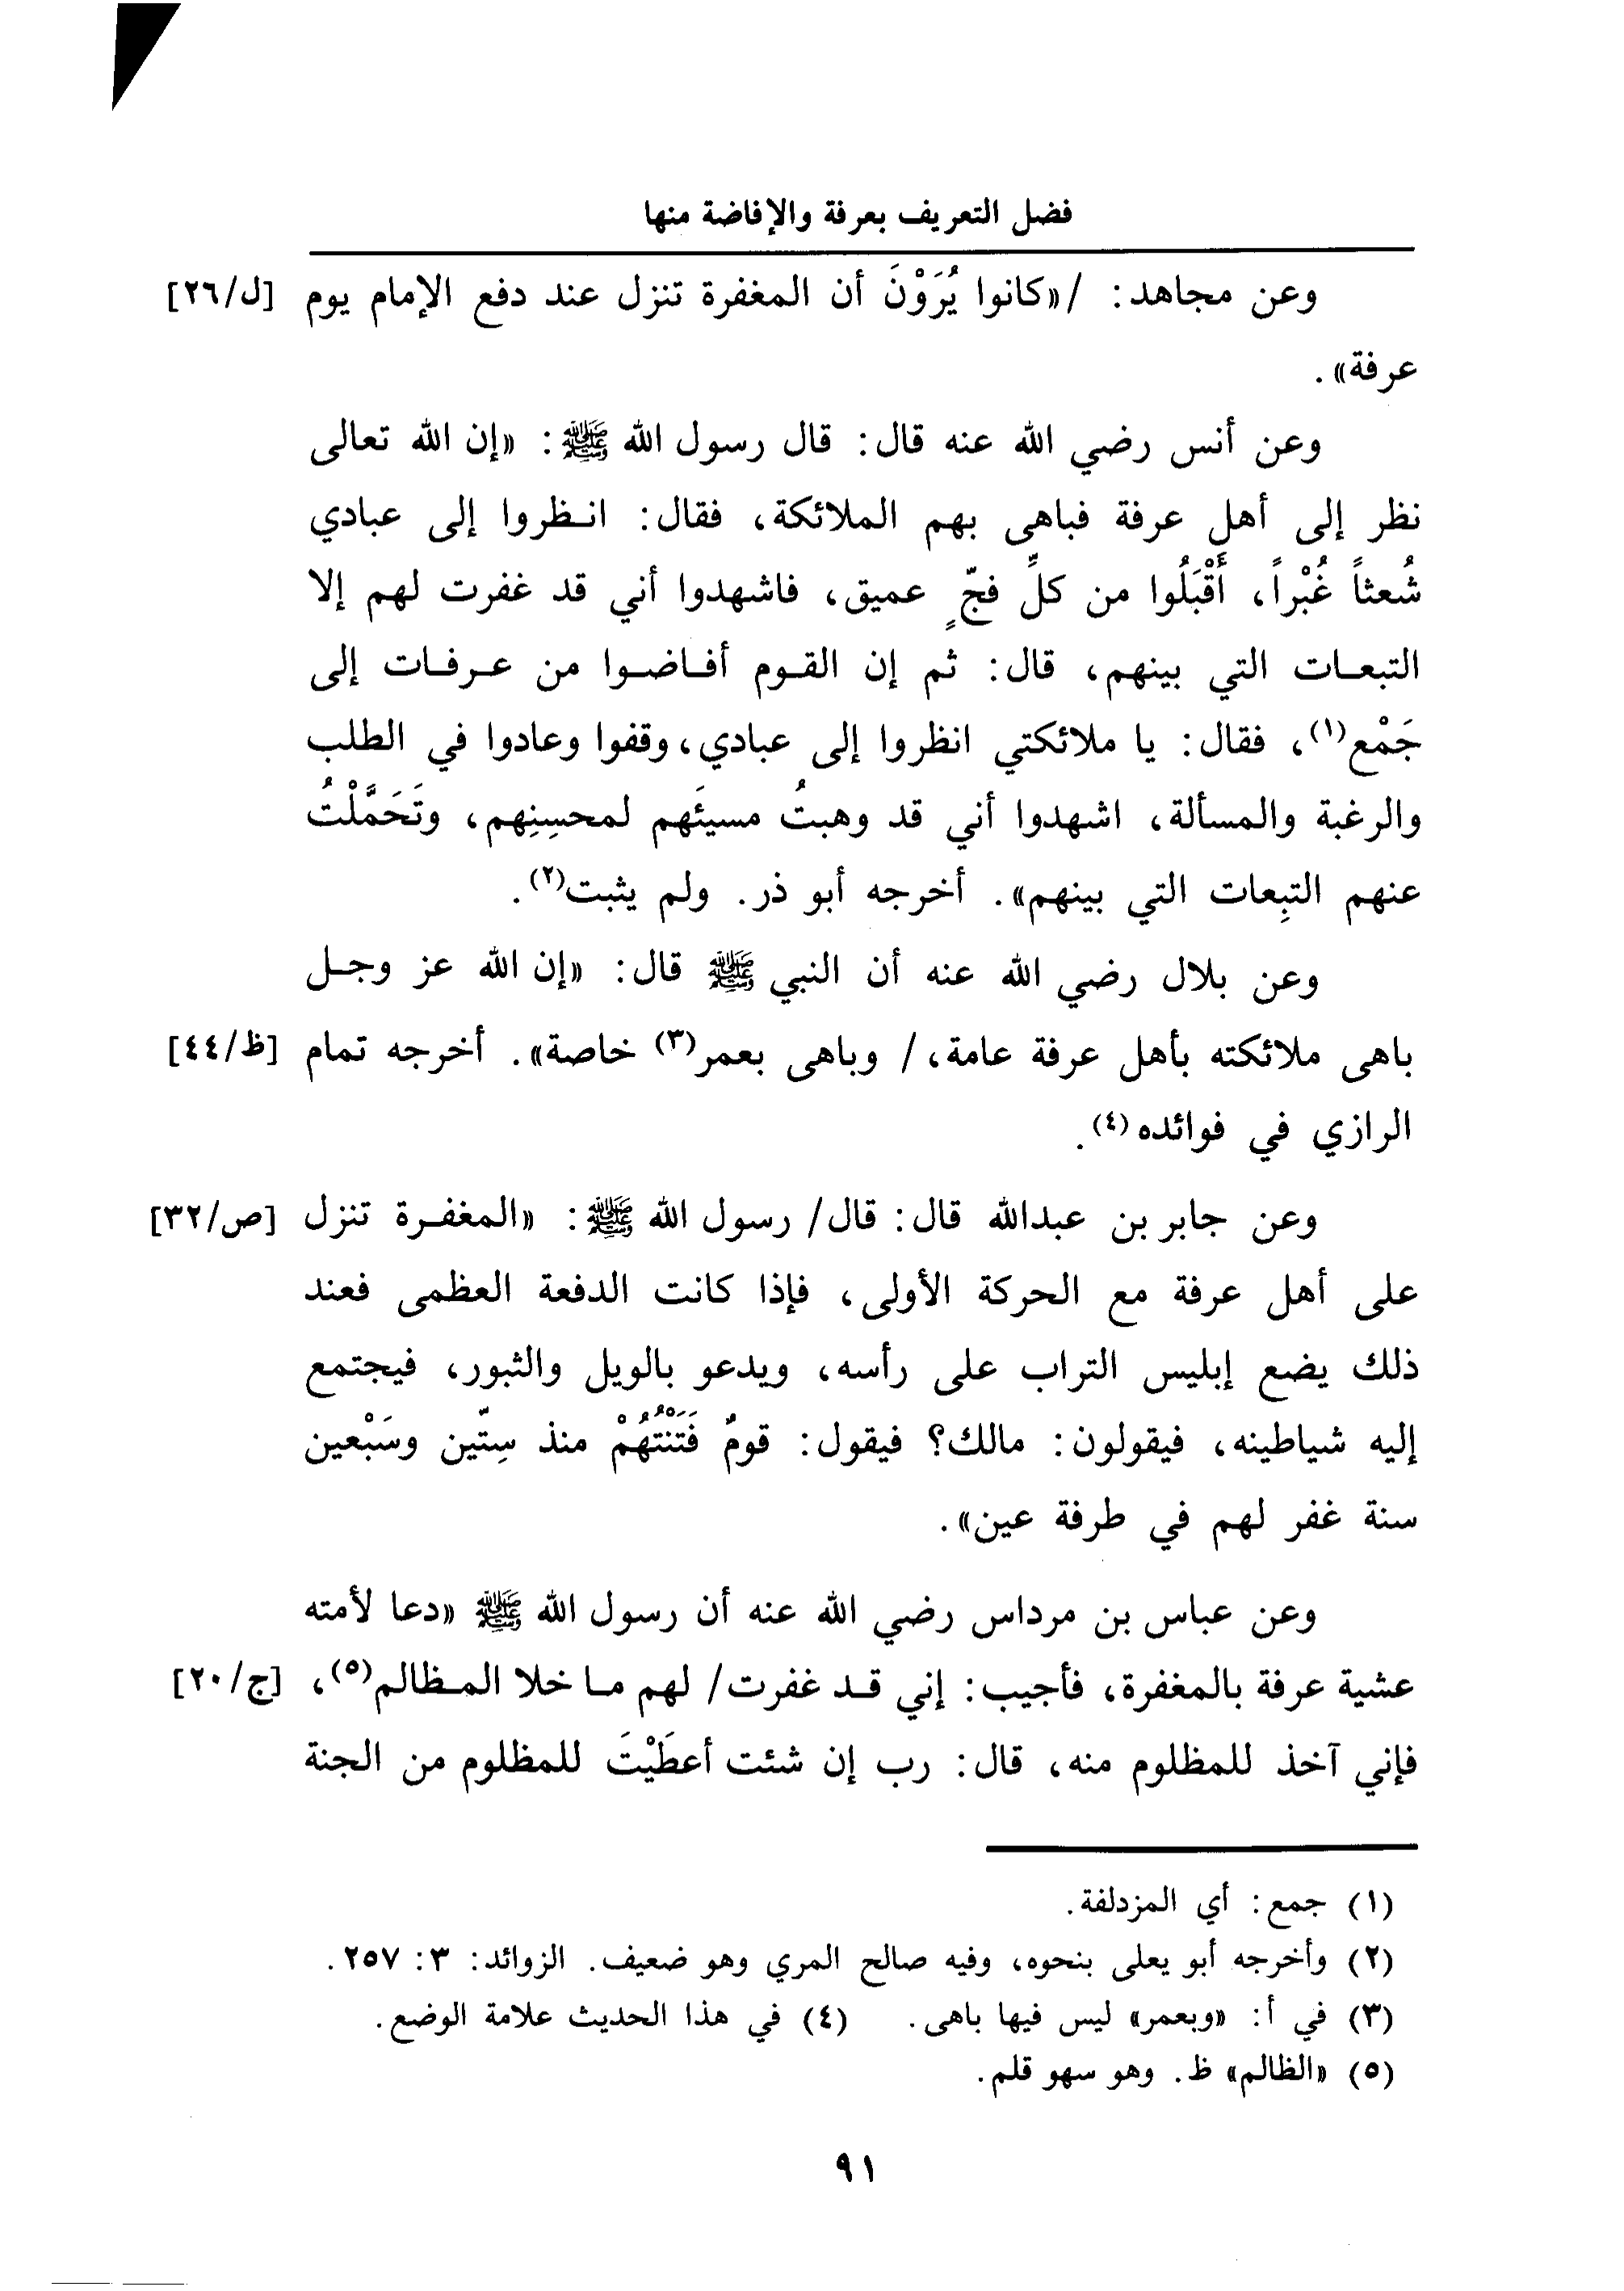 فضل التعريف بعرفة والإفاضة منها
وعن مجاهد: /«كانوا يُرَوْنَ أن المغفرة تنزل عند دفع الإمام يوم [ل/٢٦]
عرفة».
وعن أنس رضي الله عنه قال: قال رسول الله ﷺ: «إن الله تعالى
نظر إلى أهل عرفة فباهى بهم الملائكة، فقال: انظروا إلى عبادي
شُعثاً غُبْراً، أَقْبَلُوا من كلِّ فجّ عميق، فاشهدوا أني قد غفرت لهم إلا
التبعات التي بينهم، قال: ثم إن القوم أفاضوا من عرفات إلى
جَمْع(١)، فقال: يا ملائكتي انظروا إلى عبادي، وقفوا وعادوا في الطلب
والرغبة والمسألة، اشهدوا أني قد وهبتُ مسيئَهم لمحسِنِهم، وتَحَمَّلْتُ
عنهم التبِعات التي بينهم». أخرجه أبو ذر. ولم يثبت(٢).
وعن بلال رضي الله عنه أن النبي ﷺ قال: «إن الله عز وجل
باهى ملائكته بأهل عرفة عامة، / وباهى بعمر(٣) خاصة». أخرجه تمام [ظ/٤٤]
الرازي في فوائده(٤).
وعن جابر بن عبدالله قال: قال/ رسول الله ﷺ: «المغفرة تنزل [ص/٣٢]
على أهل عرفة مع الحركة الأولى، فإذا كانت الدفعة العظمى فعند
ذلك يضع إبليس التراب على رأسه، ويدعو بالويل والثبور، فيجتمع
إليه شياطينه، فيقولون: مالك؟ فيقول: قومٌ فَتَنْتُهُمْ منذ سِتّين وسَبْعين
سنة غفر لهم في طرفة عين».
وعن عباس بن مرداس رضي الله عنه أن رسول الله ﷺ «دعا لأمته
عشية عرفة بالمغفرة، فأجيب: إني قد غفرت/ لهم ما خلا المظالم(٥)، [ج/٢٠]
فإني آخذ للمظلوم منه، قال: رب إن شئت أعطَيْتَ للمظلوم من الجنة
(١) جمع: أي المزدلفة.
(٢) وأخرجه أبو يعلى بنحوه، وفيه صالح المري وهو ضعيف. الزوائد: ٣: ٢٥٧.
(٣) في أ: «وبعمر» ليس فيها باهى. (٤) في هذا الحديث علامة الوضع.
(٥) «الظالم» ظ. وهو سهو قلم.
٩١